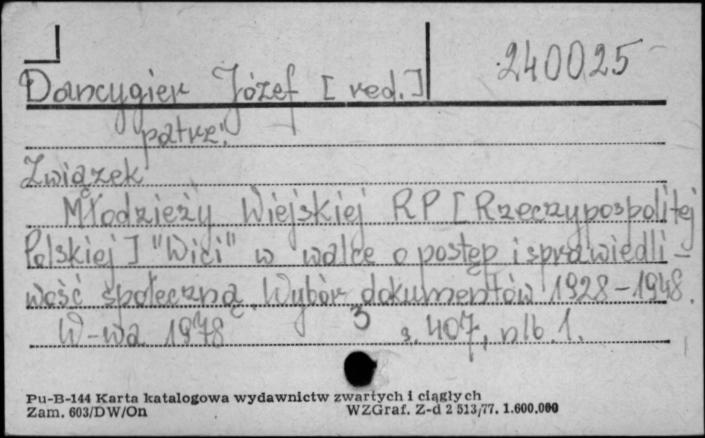 240025
Dancygier Józef [red.]
patrz:
Związek
Młodzieży Wiejskiej RP [Rzeczypospolitej
Polskiej] "Wici" w walce o postęp i sprawiedli-
wość społeczną. Wybór dokumentów 1928-1948.
W-wa 1978 s. 407, nlb. 1.
3
Pu-B-144 Karta katalogowa wydawnictw zwartych i ciągłych
Zam. 603/DW/On WZGraf. Z-d 2 513/77. 1.600.000